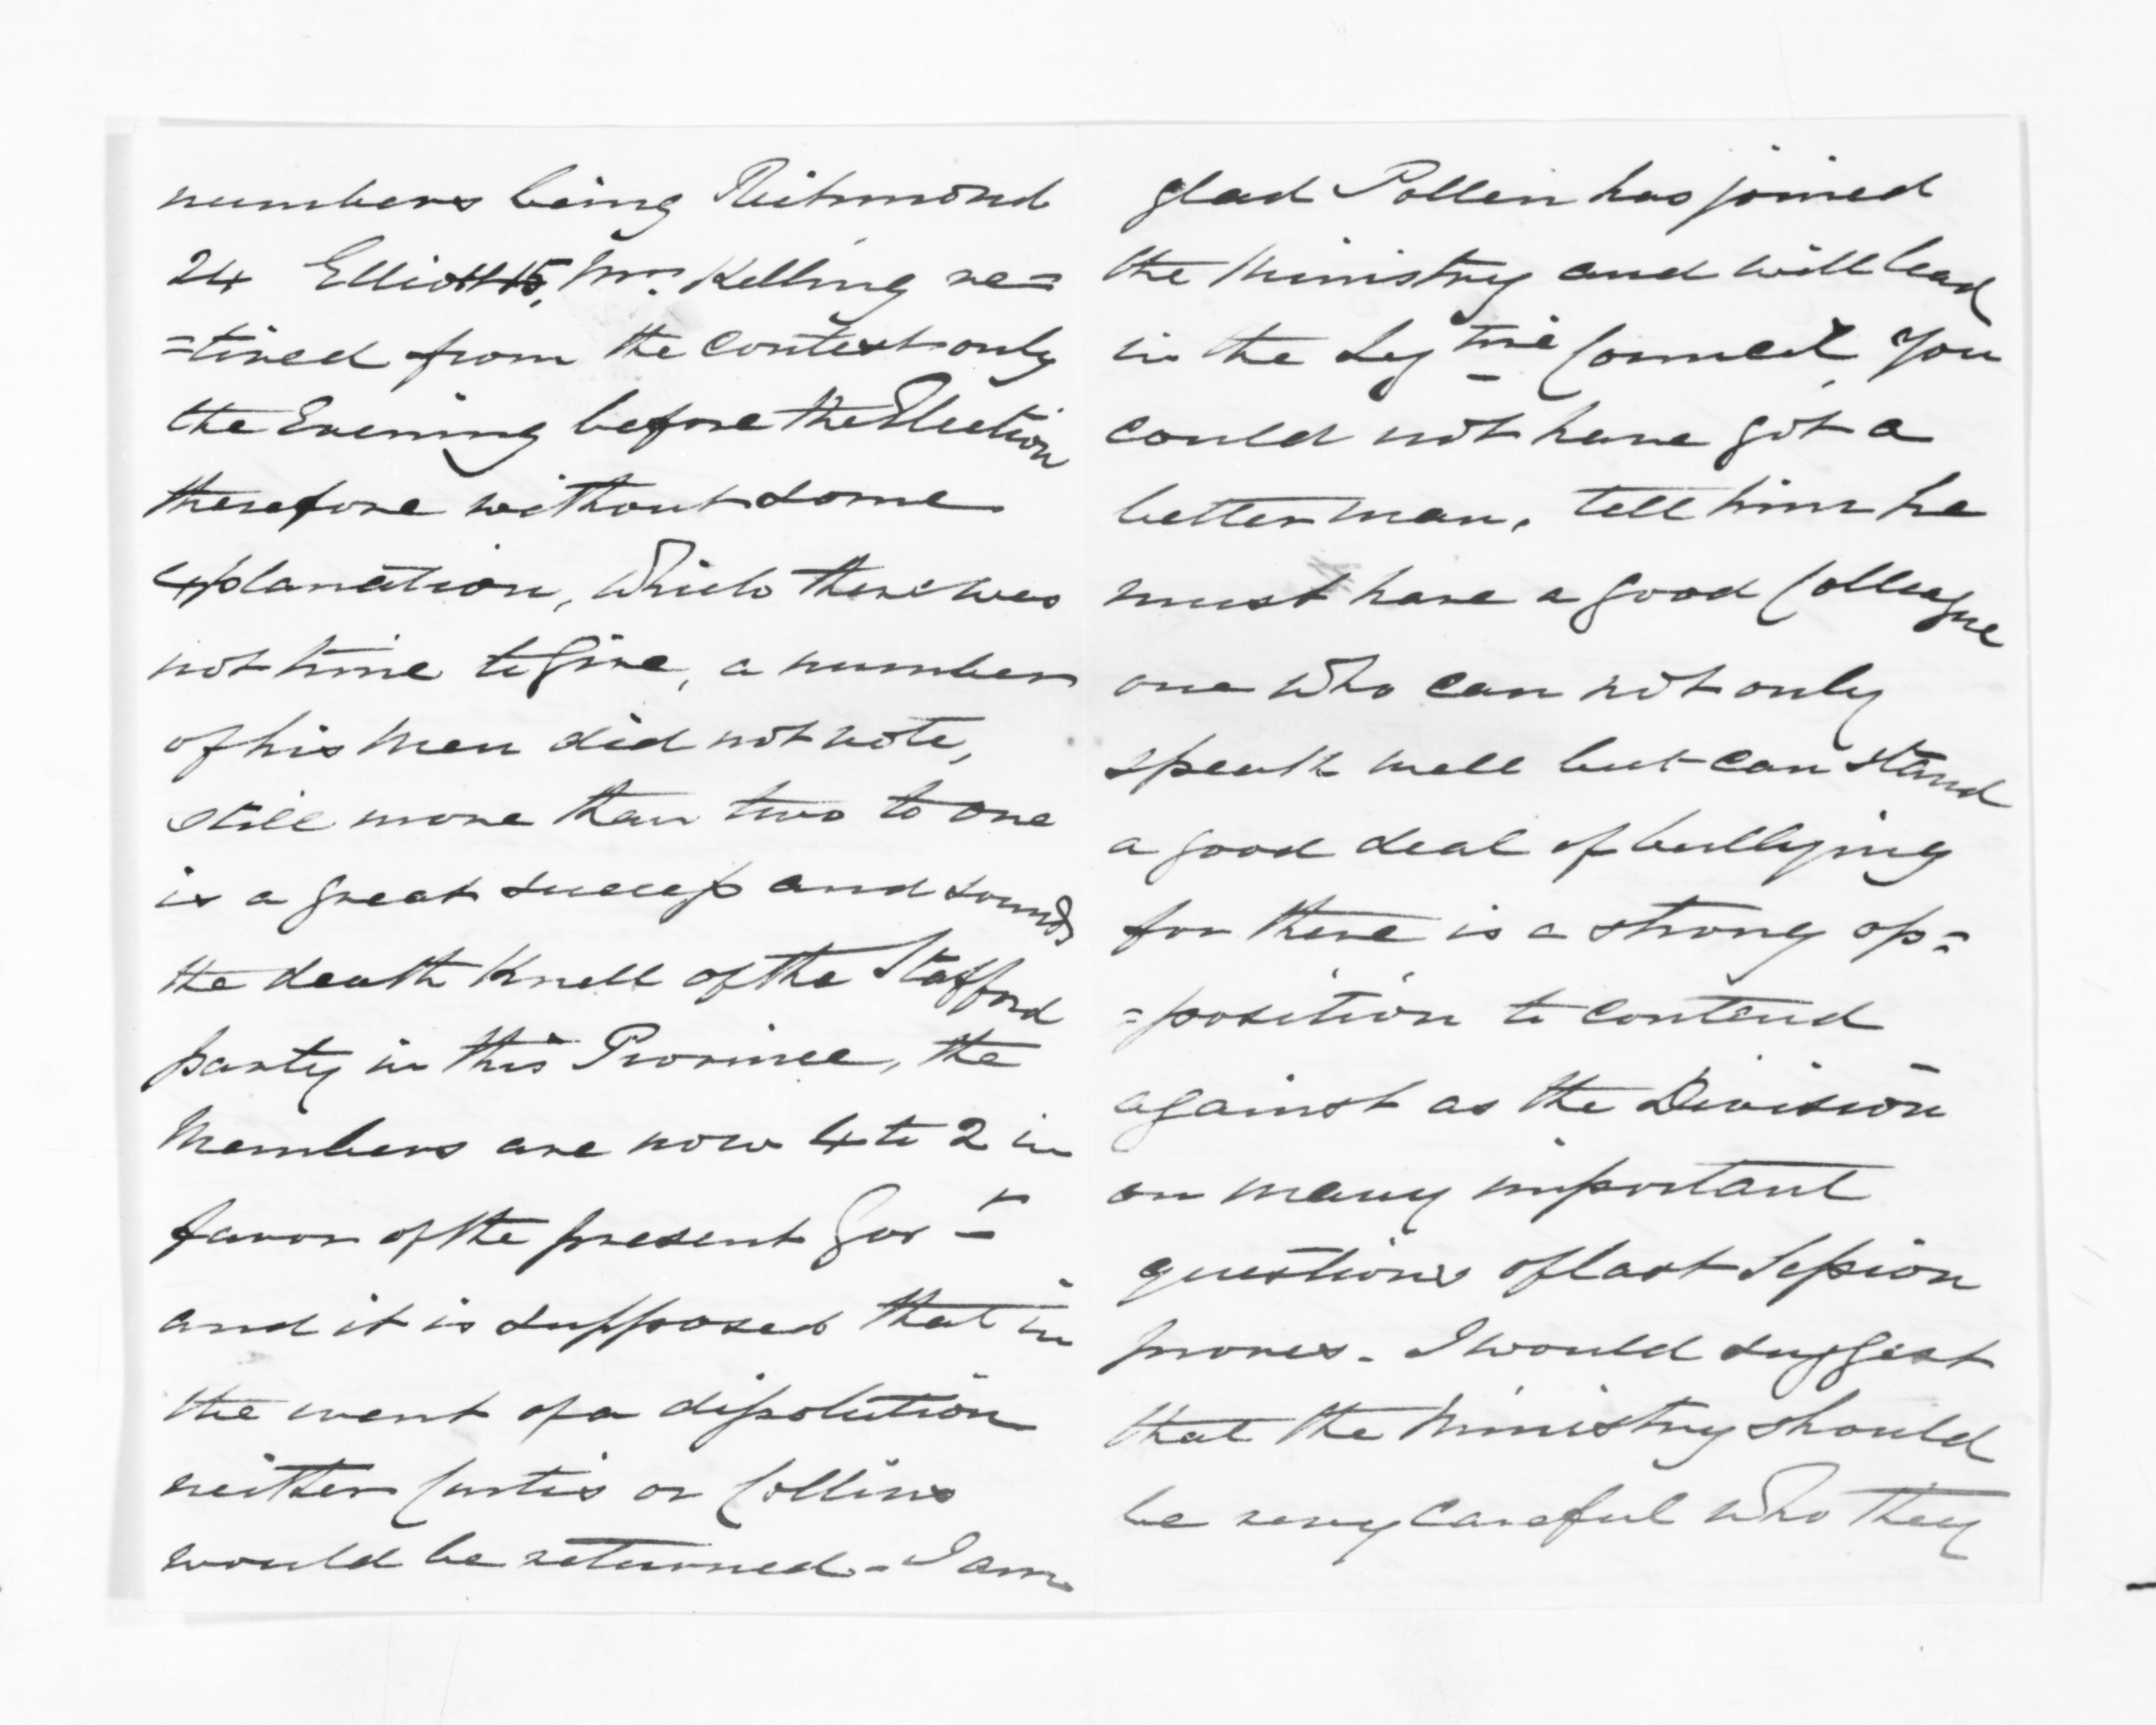 numbers being Richmond
24 Elliott 15, Mr. Kelling re=
=tired from the contest only
the Evening before the Election
therefore without some
explanation, which there was
not time to give, a number
of his men did not vote,
still more than two to one
is a great success and sounds
the death knell of the Stafford
party in this Province, the
Members are now 4 to 2 in
favor of the present Govt
and it is supposed that in
the event of a dissolution
neither Curtis or Collins
would be returned - I am
glad Pollen has joined
the Ministry and will lead
in the Legtive Council, You
could not have got a
better man, tell him he
must have a good Colleague
one who can not only
speak well but can stand
a good deal of bullying
for there is a strong op=
=position to contend
against as the Division
on many important
questions of last Session
proves. I would suggest
that the Ministry should
be very careful who they